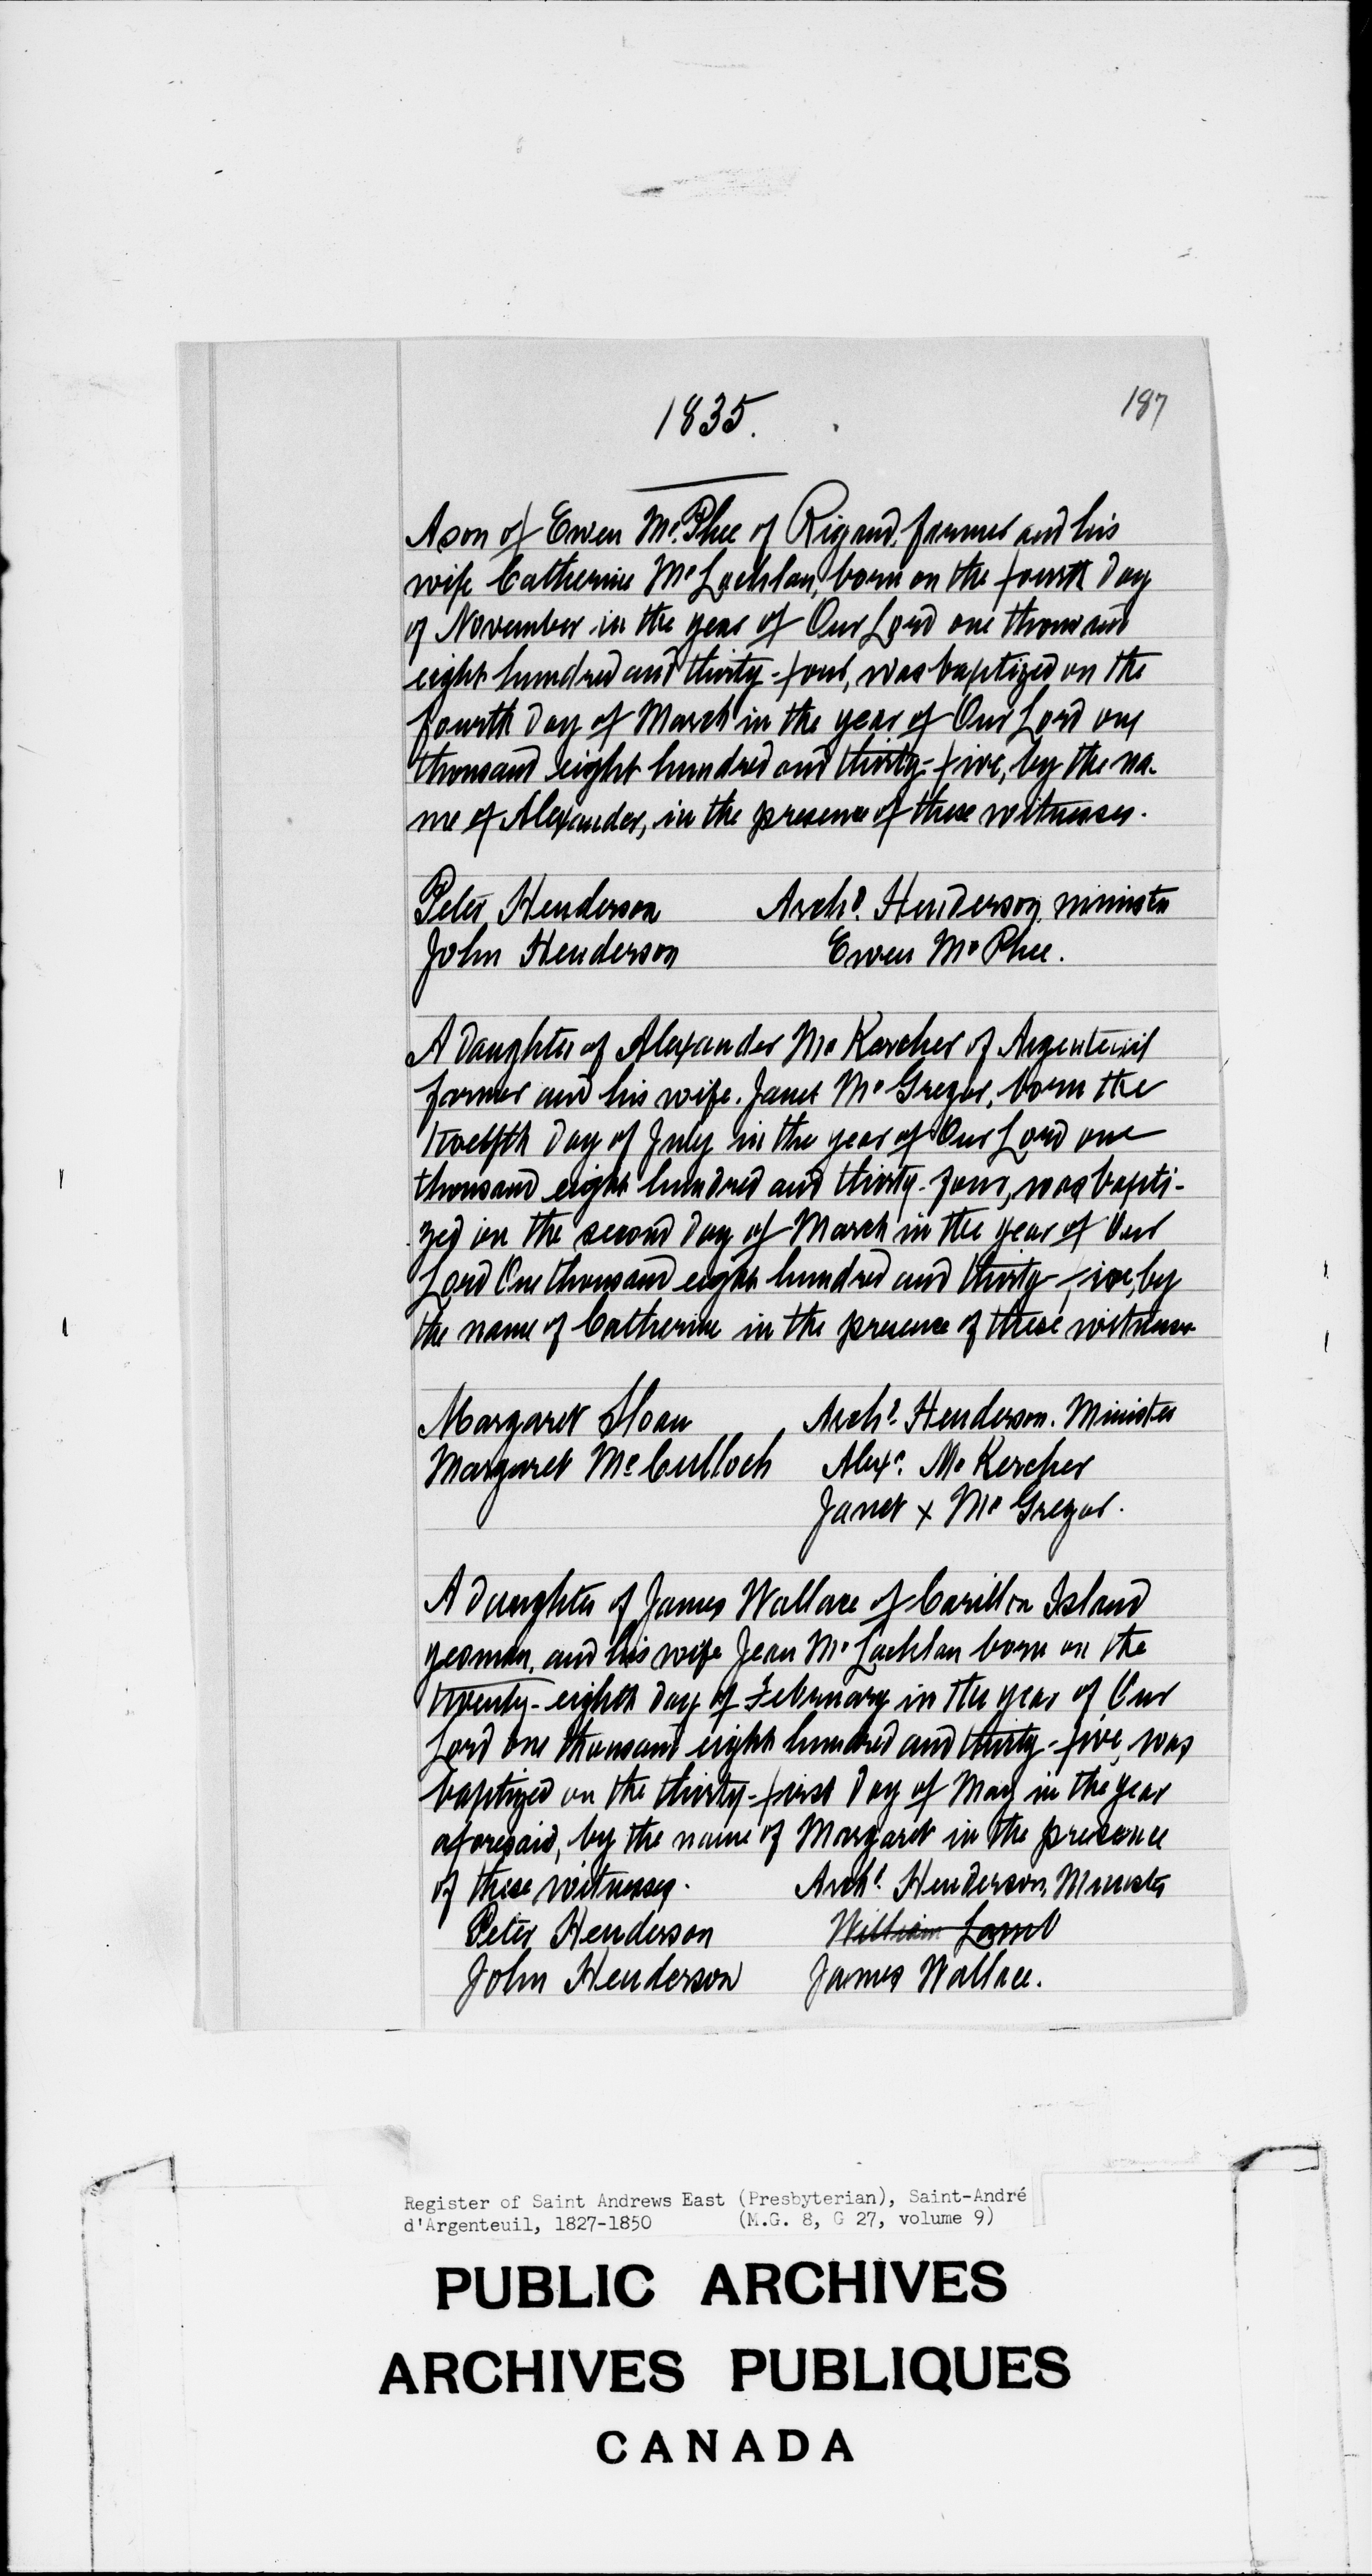 187
1835.
A son of Ewen Mc.Phee of Rigaud, farmer and his
wife Catherine McLachlan, born on the fourth day
of November in the year of Our Lord one thousand
eight hundred and thirty-four, was baptized on the
fourth day of March in the year of Our Lord one
thousand eight hundred and thirty-five, by the na-
me of Alexander, in the presence of these witnesses.
Peter Henderson Archd. Henderson, minister
John Henderson Ewen McPhee.
A daughter of Alexander McKercher of Argenteuil
farmer and his wife Janet McGregor, born the
twelfth day of July in the year of Our Lord one
thousand eight hundred and thirty-four, was bapti-
zed on the second day of March in the year of Our
Lord One thousand eight hundred and thirty-five, by
the name of Catherine in the presence of these witnesses
Margaret Sloan Archd. Henderson. Minister
Margaret McCulloch Alexr. McKercher
Janet x McGregor.
A daughter of James Wallace of Carillon Island
yeoman, and his wife Jean McLachlan born on the
twenty-eighth day of February in the year of Our
Lord one thousand eight hundred and thirty-five, was
baptized on the thirty-first day of May in the year
aforesaid, by the name of Margaret in the presence
of these witnesses. Archd. Henderson, Minister
Peter Henderson William Lamb
John Henderson James Wallace.
Register of Saint Andrews East (Presbyterian), Saint-André
d'Argenteuil, 1827-1850 (M.G. 8, G 27, volume 9)
PUBLIC ARCHIVES
ARCHIVES PUBLIQUES
CANADA